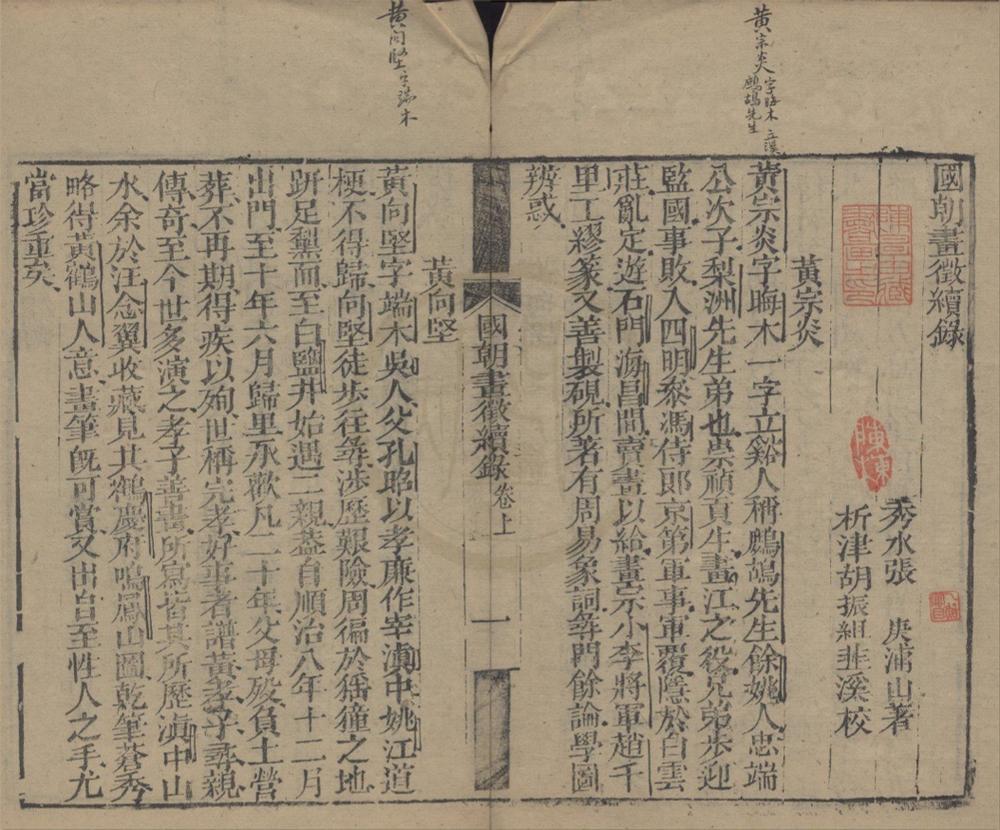 國朝畫徵續錄
秀水張　庚浦山著
析津胡振組韭溪校
黃宗炎
黃宗炎字晦木一字立谿人稱鷓鴣先生餘姚人忠端
公次子梨洲先生弟也崇禎貢生畫江之役兄弟步迎
監國事敗入四明叅馮侍郎京第軍事軍覆隱於白雲
莊亂定遊石門海昌間賣畫以給畫宗小李將軍趙千
里工繆篆又善製硯所著有周易象詞尋門餘論學圖
辨惑
國朝畫徵續錄 卷上 一
黃向堅
黃向堅字端木吳人父孔昭以孝亷作宰滇中姚江道
梗不得歸向堅徒步往尋涉歷艱險周徧於猺獞之地
跰足黧面至白鹽井始遇二親葢自順治八年十二月
出門至十年六月歸里承歡凡二十年父母歿負土營
葬不再期得疾以殉世稱完孝好事者譜黃孝子尋親
傳奇至今世多演之孝子善畫所寫皆其所歷滇中山
水余於汪念翼收藏見其鶴慶府鳴鳳山圖乾筆蒼秀
略得黃鶴山人意畫筆旣可賞又出自至性人之手尤
當珍重矣
黃宗炎字晦木 立溪
鷓鴣先生
黃向堅字端木